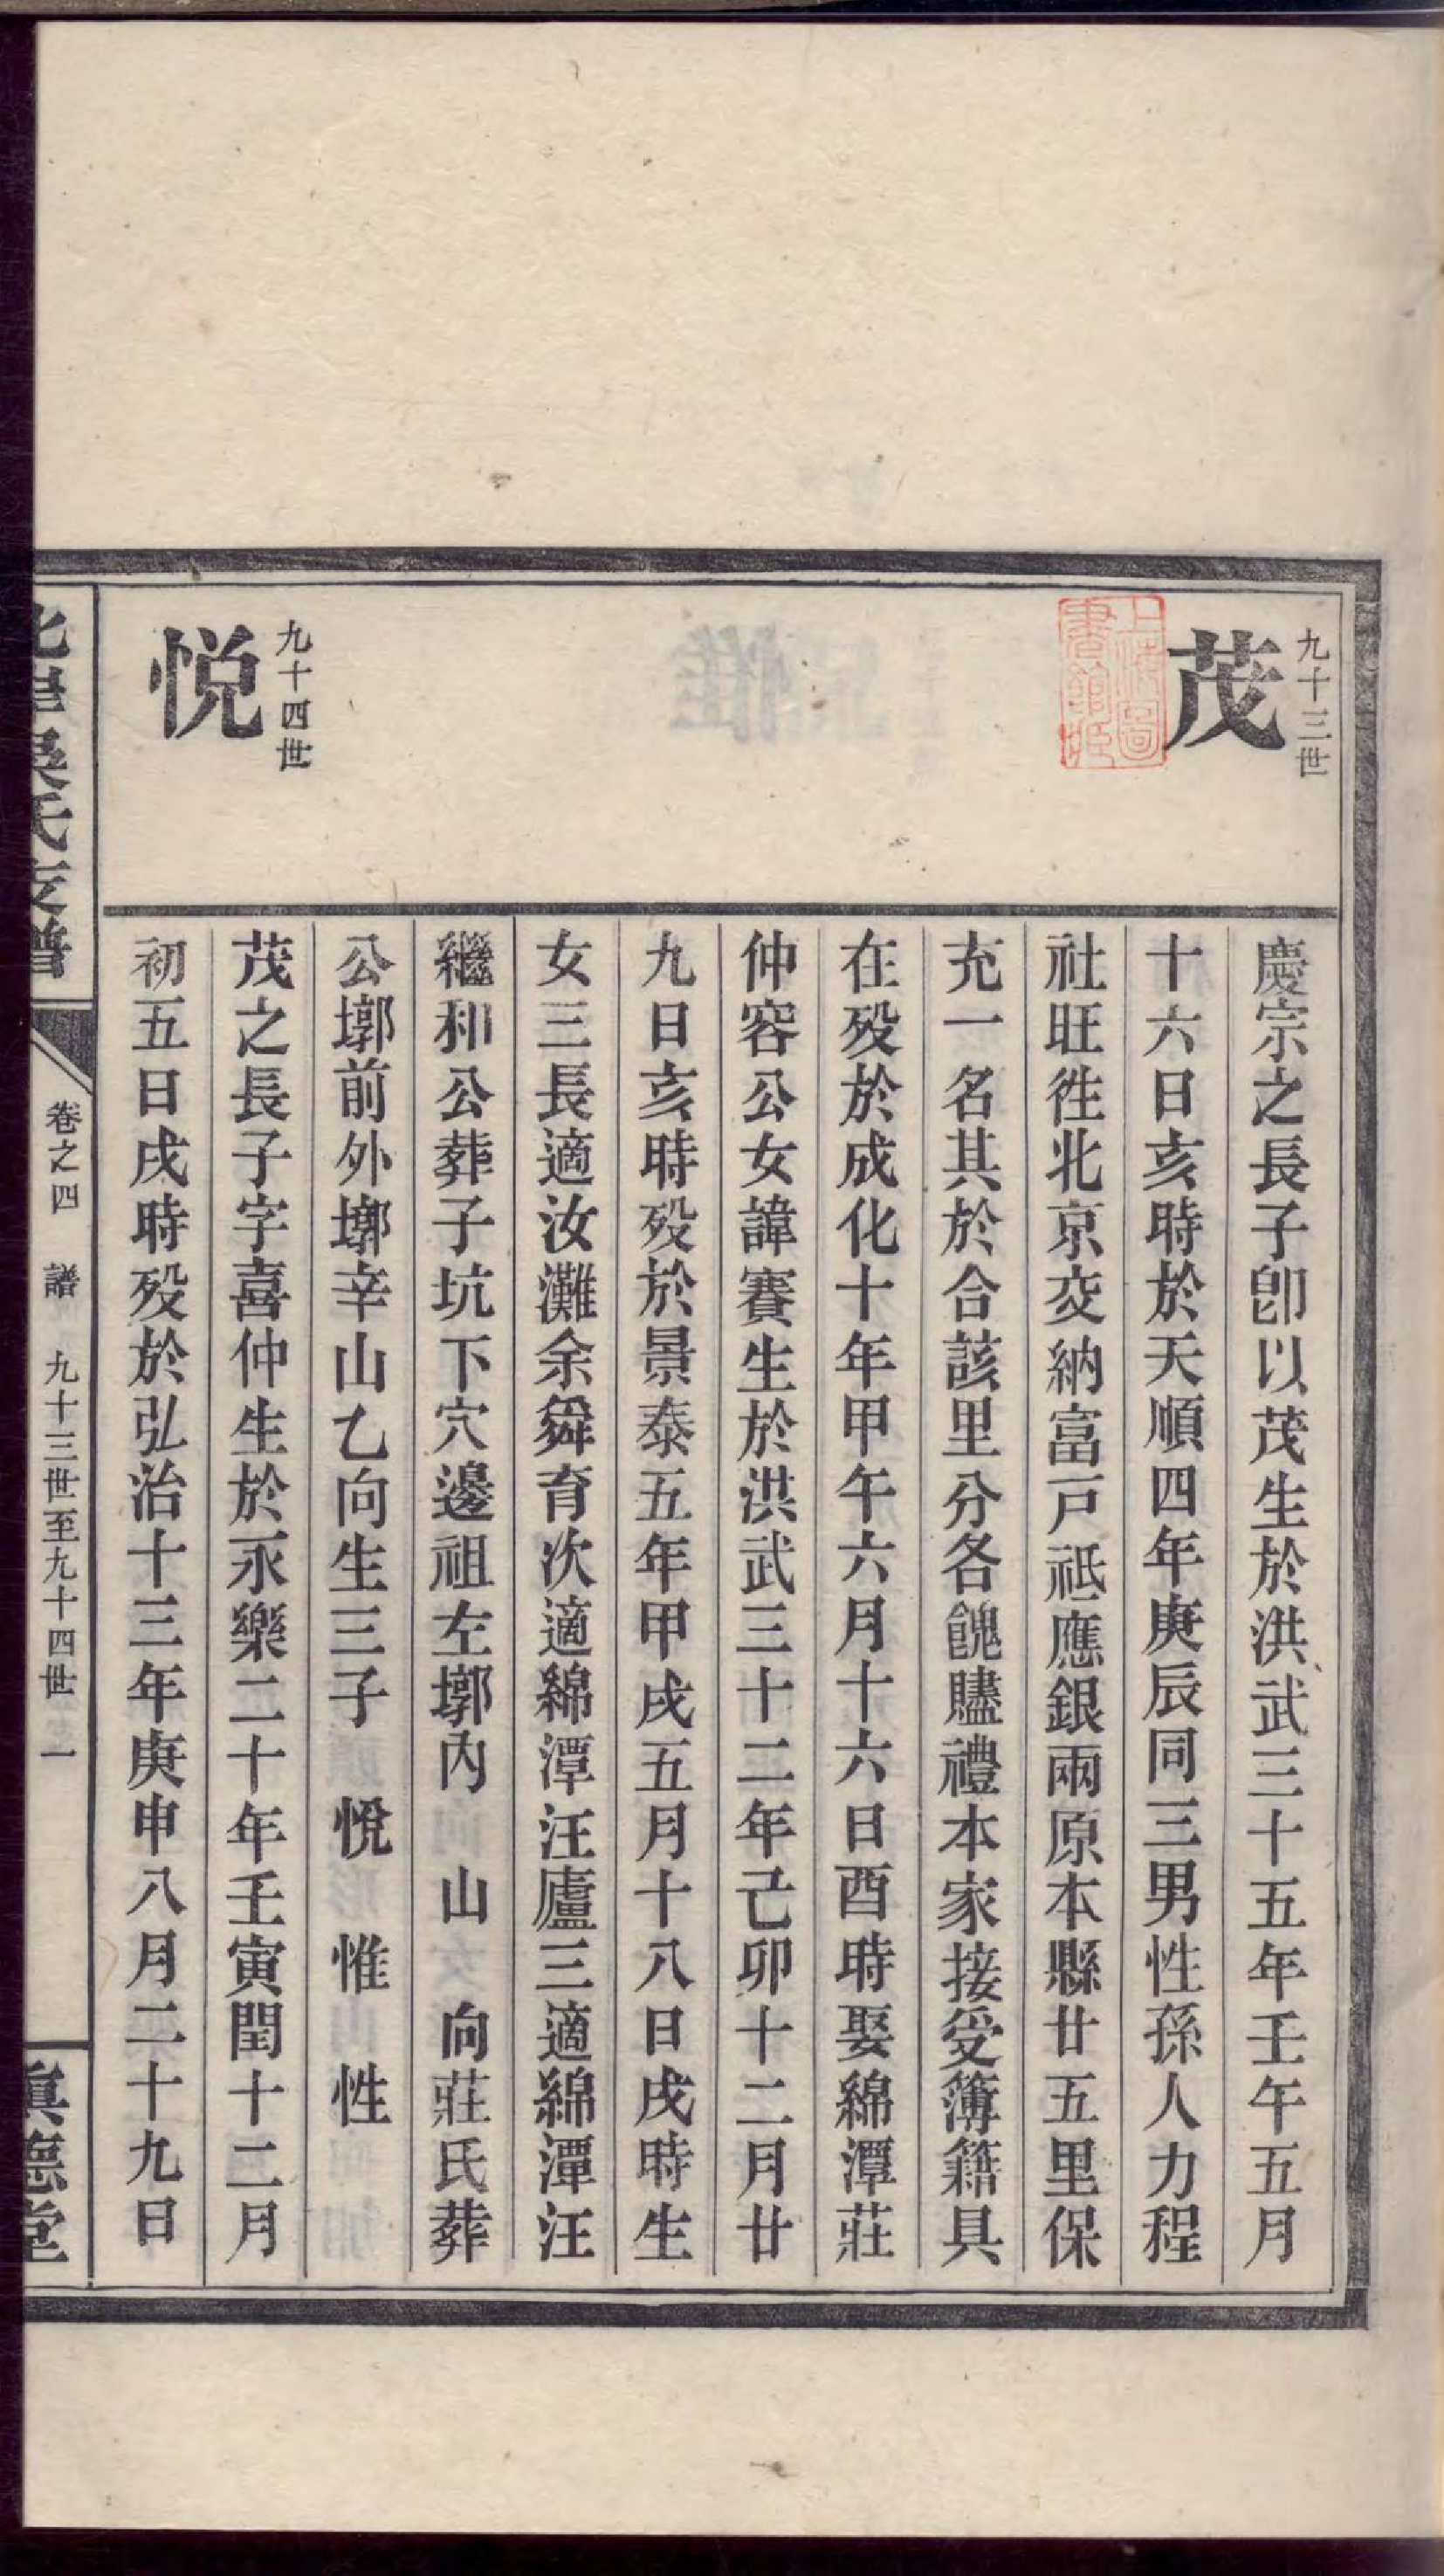 九十三世
茂
慶宗之長子卽以茂生於洪武三十五年壬午五月
十六日亥時於天順四年庚辰同三男性孫人力程
社旺徃北京交納富戸祗應銀兩原本縣廿五里保
充一名其於合該里分各餽贐禮本家接受簿籍具
在歿於成化十年甲午六月十六日酉時娶綿潭莊
仲容公女諱賽生於洪武三十二年己卯十二月廿
九日亥時歿於景泰五年甲戌五月十八日戌時生
女三長適汝灘余舜育次適綿潭汪廬三適綿潭汪
繼和公葬子坑下穴邊祖左墎內 山 向莊氏葬
公墎前外墎辛山乙向生三子 悅 惟 性
九十四世
悅
茂之長子字喜仲生於永樂二十年壬寅閏十二月
初五日戌時歿於弘治十三年庚申八月二十九日
北岸吳氏支譜
卷之四 譜 九十三世至九十四世 一
眞德堂
上海圖書館藏